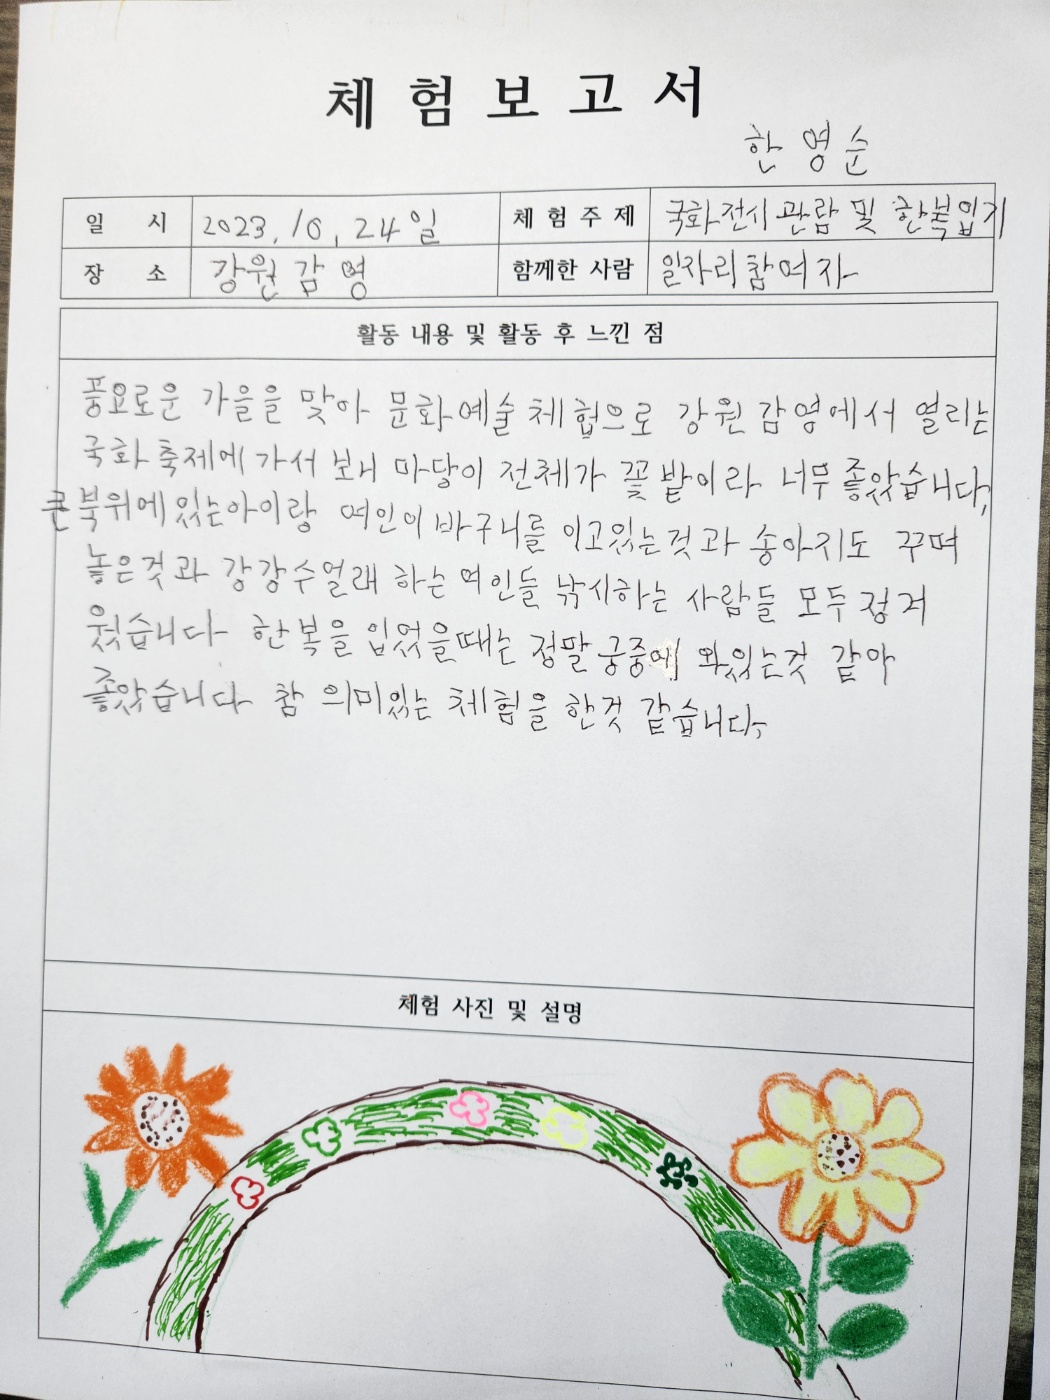 체험보고서
한영순
일 시 2023, 10, 24일 체험주제 국화전시 관람 및 한복입기
장 소 강원감영 함께한 사람 일자리참여자
활동 내용 및 활동 후 느낀 점
풍요로운 가을을 맞아 문화예술체험으로 강원감영에서 열리는
국화축제에가서 보니 마당이 전체가 꽃밭이라 너무좋았습니다,
큰북위에있는아이랑 여인이바구니를 이고있는것과 송아지도 꾸며
놓은것과 강강수얼래 하는 여인들 낚시하는 사람들 모두정겨
웠습니다 한복을입었을때는 정말궁중에 와있는것 같아
좋았습니다 참 의미있는 체험을한것 같습니다,
체험 사진 및 설명